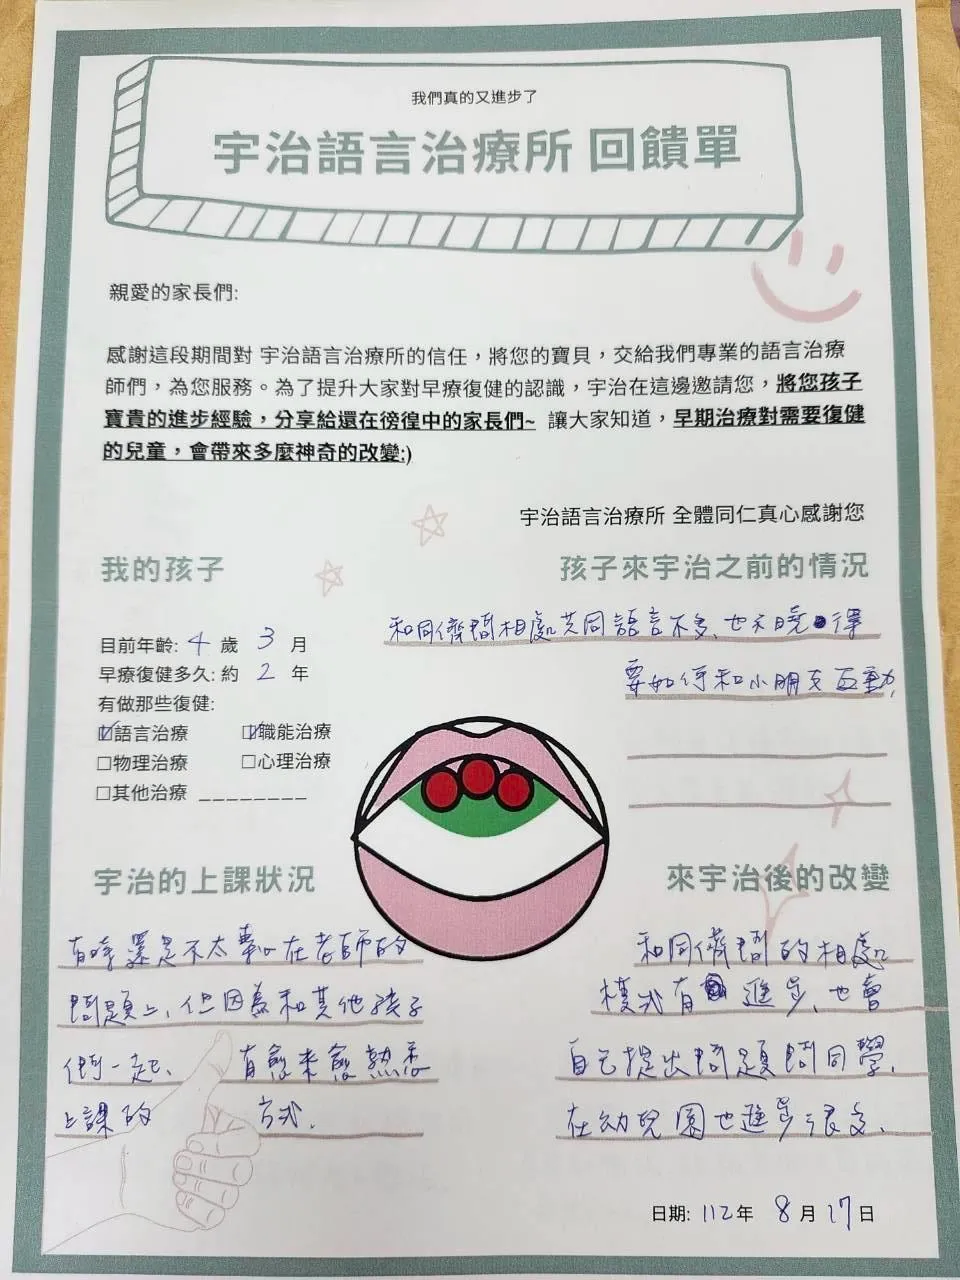 我們真的又進步了
宇治語言治療所 回饋單
親愛的家長們:
感謝這段期間對 宇治語言治療所的信任，將您的寶貝，交給我們專業的語言治療
師們，為您服務。為了提升大家對早療復健的認識，宇治在這邊邀請您，將您孩子
寶貴的進步經驗，分享給還在徬徨中的家長們~ 讓大家知道，早期治療對需要復健
的兒童，會帶來多麼神奇的改變:)
宇治語言治療所 全體同仁真心感謝您
我的孩子
目前年齡: 4 歲 3 月
早療復健多久: 約 2 年
有做那些復健:
☑語言治療 ☑職能治療
□物理治療 □心理治療
□其他治療 ________
孩子來宇治之前的情況
和同儕間相處共同語言不多、也不曉得
要如何和小朋友互動,
宇治的上課狀況
有時還是不太專心在老師的
問題上、但因為和其他孩子
們一起、有愈來愈熟悉
上課的 方式.
來宇治後的改變
和同儕間的相處
模式有進步、也會
自己提出問題問同學.
在幼兒園也進步很多、
日期: 112年 8月 17日